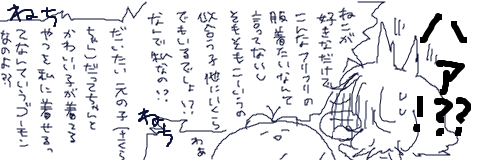 ハァ??!
ねこが
好きなだけで
こんなフリフリの
服着たいなんて
言ってないし
そもそもこーいうの
似合う子他にいくら
でもいるでしょ!??
なんで私なの!??
わぁ
ねち
だいたい 元の子(さくら
ちゃん)だってちゃんと
かわいい子が着てる
やつを私に着せるっ
てなんていうゴーモン
なのよ??
ねち